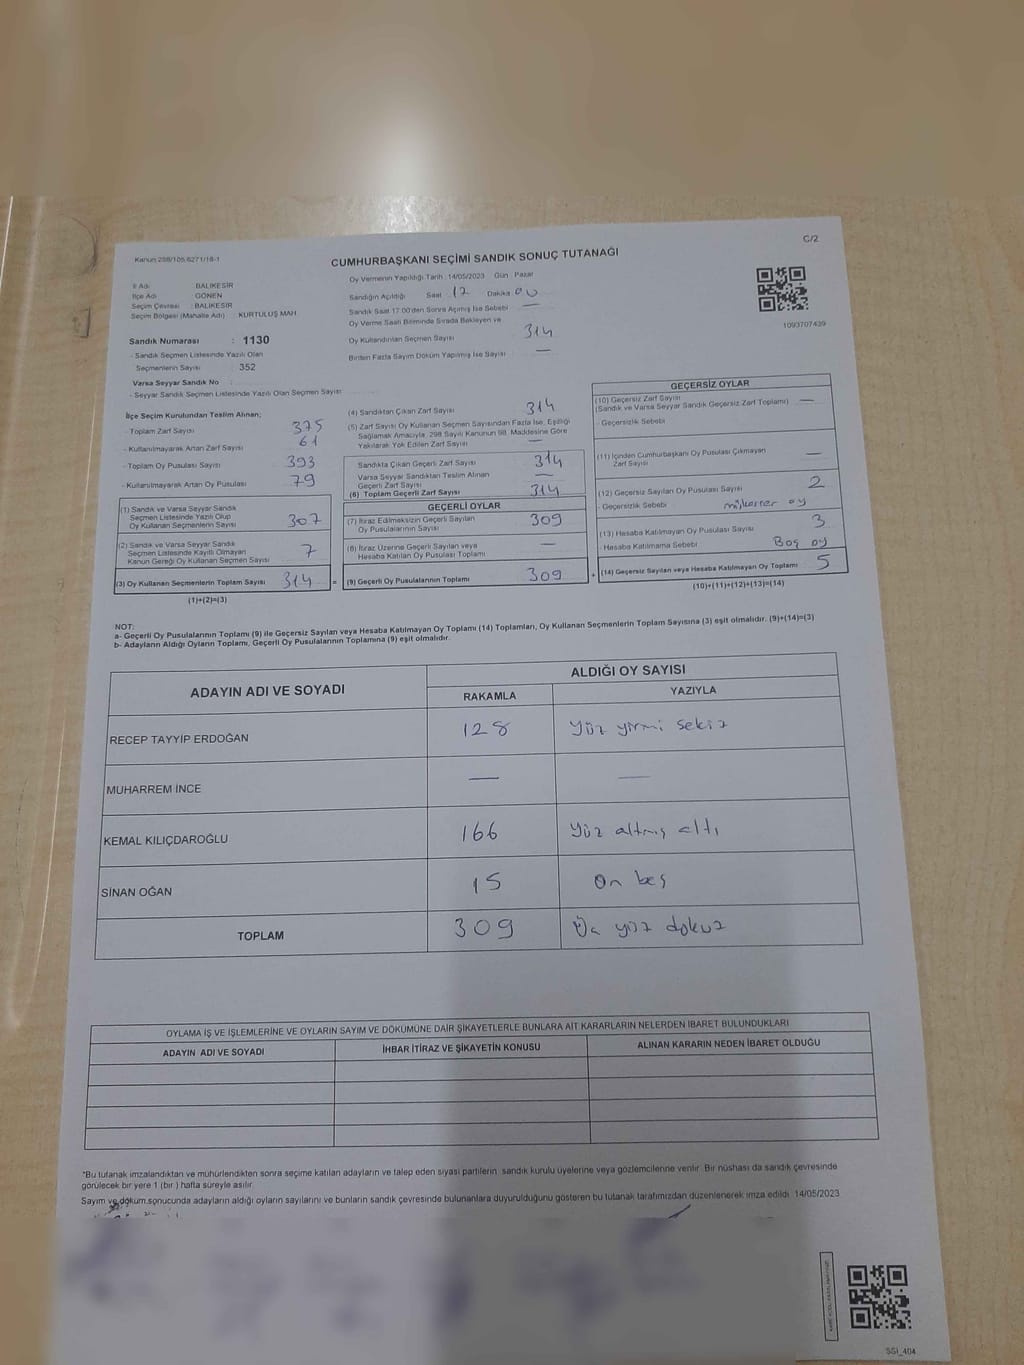 C/2
Kanun 298/105,6271/18-1
CUMHURBAŞKANI SEÇİMİ SANDIK SONUÇ TUTANAĞI
İl Adı : BALIKESİR
İlçe Adı : GÖNEN
Seçim Çevresi : BALIKESİR
Seçim Bölgesi (Mahalle Adı) : KURTULUŞ MAH.
Sandık Numarası : 1130
- Sandık Seçmen Listesinde Yazılı Olan
Seçmenlerin Sayısı : 352
Varsa Seyyar Sandık No :
- Seyyar Sandık Seçmen Listesinde Yazılı Olan Seçmen Sayısı
Oy Vermenin Yapıldığı Tarih : 14/05/2023 Gün : Pazar
Sandığın Açıldığı Saat 17 Dakika 00
Sandık Saat 17:00'den Sonra Açılmış İse Sebebi —
Oy Verme Saati Bitiminde Sırada Bekleyen ve
Oy Kullandırılan Seçmen Sayısı 314
Birden Fazla Sayım Döküm Yapılmış İse Sayısı —
1093707439
İlçe Seçim Kurulundan Teslim Alınan;
- Toplam Zarf Sayısı 375
- Kullanılmayarak Artan Zarf Sayısı 61
- Toplam Oy Pusulası Sayısı 393
- Kullanılmayarak Artan Oy Pusulası 79
(1) Sandık ve Varsa Seyyar Sandık
Seçmen Listesinde Yazılı Olup
Oy Kullanan Seçmenlerin Sayısı 307
(2) Sandık ve Varsa Seyyar Sandık
Seçmen Listesinde Kayıtlı Olmayan
Kanun Gereği Oy Kullanan Seçmen Sayısı 7
(3) Oy Kullanan Seçmenlerin Toplam Sayısı 314 =
(1)+(2)=(3)
(4) Sandıktan Çıkan Zarf Sayısı 314
(5) Zarf Sayısı Oy Kullanan Seçmen Sayısından Fazla İse, Eşitliği
Sağlamak Amacıyla, 298 Sayılı Kanunun 98. Maddesine Göre
Yakılarak Yok Edilen Zarf Sayısı —
Sandıkta Çıkan Geçerli Zarf Sayısı 314
Varsa Seyyar Sandıktan Teslim Alınan
Geçerli Zarf Sayısı —
(6) Toplam Geçerli Zarf Sayısı 314
GEÇERLİ OYLAR
(7) İtiraz Edilmeksizin Geçerli Sayılan
Oy Pusulalarının Sayısı 309
(8) İtiraz Üzerine Geçerli Sayılan veya
Hesaba Katılan Oy Pusulası Toplamı —
(9) Geçerli Oy Pusulalarının Toplamı 309 +
GEÇERSİZ OYLAR
(10) Geçersiz Zarf Sayısı
(Sandık ve Varsa Seyyar Sandık Geçersiz Zarf Toplamı) —
- Geçersizlik Sebebi
(11) İçinden Cumhurbaşkanı Oy Pusulası Çıkmayan
Zarf Sayısı —
(12) Geçersiz Sayılan Oy Pusulası Sayısı 2
- Geçersizlik Sebebi mükerrer oy
(13) Hesaba Katılmayan Oy Pusulası Sayısı 3
- Hesaba Katılmama Sebebi Boş oy
(14) Geçersiz Sayılan veya Hesaba Katılmayan Oy Toplamı 5
(10)+(11)+(12)+(13)=(14)
NOT:
a- Geçerli Oy Pusulalarının Toplamı (9) ile Geçersiz Sayılan veya Hesaba Katılmayan Oy Toplamı (14) Toplamları, Oy Kullanan Seçmenlerin Toplam Sayısına (3) eşit olmalıdır. (9)+(14)=(3)
b- Adayların Aldığı Oyların Toplamı, Geçerli Oy Pusulalarının Toplamına (9) eşit olmalıdır.
ADAYIN ADI VE SOYADI
ALDIĞI OY SAYISI
RAKAMLA YAZIYLA
RECEP TAYYİP ERDOĞAN 128 Yüz yirmi sekiz
MUHARREM İNCE — —
KEMAL KILIÇDAROĞLU 166 Yüz altmış altı
SİNAN OĞAN 15 On beş
TOPLAM 309 Üç yüz dokuz
OYLAMA İŞ VE İŞLEMLERİNE VE OYLARIN SAYIM VE DÖKÜMÜNE DAİR ŞİKAYETLERLE BUNLARA AİT KARARLARIN NELERDEN İBARET BULUNDUKLARI
ADAYIN ADI VE SOYADI İHBAR İTİRAZ VE ŞİKAYETİN KONUSU ALINAN KARARIN NEDEN İBARET OLDUĞU
*Bu tutanak imzalandıktan ve mühürlendikten sonra seçime katılan adayların ve talep eden siyasi partilerin sandık kurulu üyelerine veya gözlemcilerine verilir. Bir nüshası da sandık çevresinde
görülecek bir yere 1 (bir) hafta süreyle asılır.
Sayım ve döküm sonucunda adayların aldığı oyların sayılarını ve bunların sandık çevresinde bulunanlara duyurulduğunu gösteren bu tutanak tarafımızdan düzenlenerek imza edildi. 14/05/2023
SSI_404